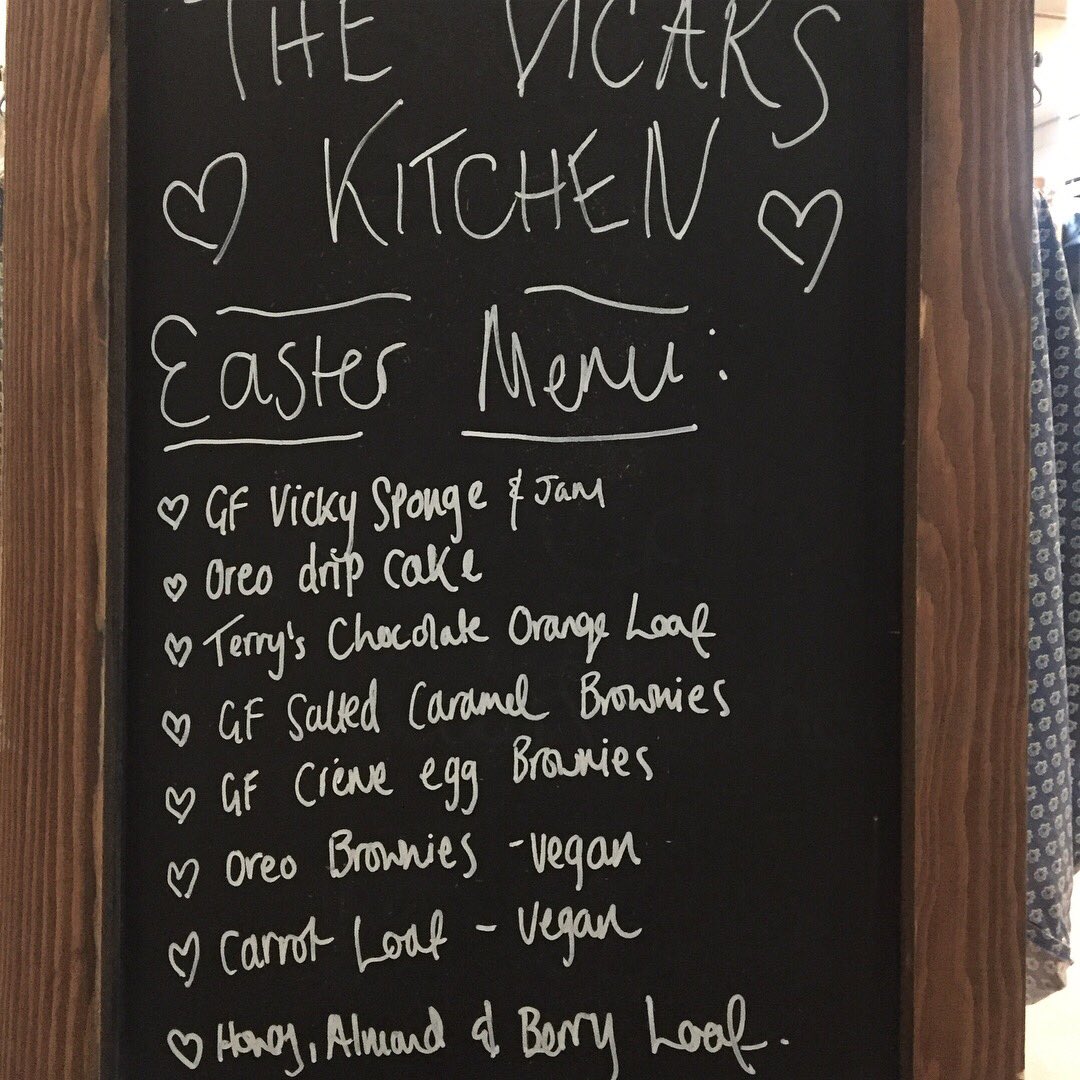 THE VICARS
KITCHEN
Easter Menu:
GF Vicky Sponge & Jam
Oreo drip cake
Terry's Chocolate Orange Loaf
GF Salted Caramel Brownies
GF Crème egg Brownies
Oreo Brownies - Vegan
Carrot Loaf - Vegan
Honey, Almond & Berry Loaf.